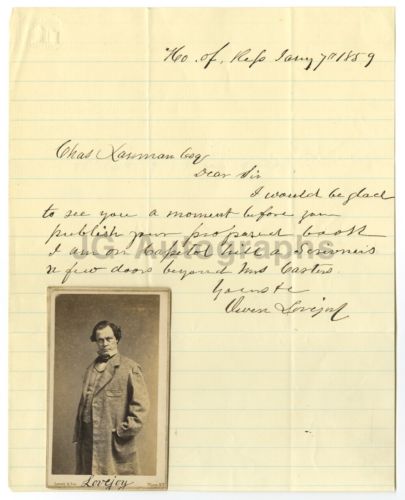 Ho. of. Reps Jany 7th 1859
Chas Lanman Esq
Dear Sir
I would be glad
to see you a moment before you
publish your proposed book
I am on Capitol hill a
a few doors beyond Mrs Carters
Yours &c
Owen Lovejoy
JG Autographs
Lovejoy